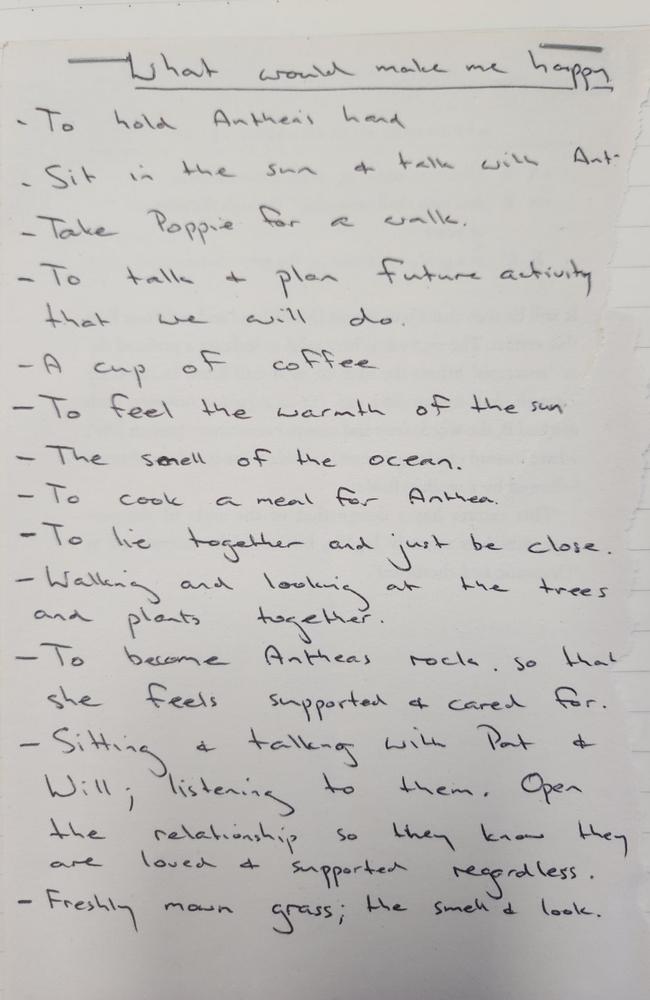 What would make me happy
- To hold Anthea's hand
- Sit in the sun & talk with Ant-
- Take Poppie for a walk.
- To talk + plan future activity
that we will do.
- A cup of coffee
- To feel the warmth of the sun
- The smell of the ocean.
- To cook a meal for Anthea
- To lie together and just be close.
- Walking and looking at the trees
and plants together.
- To become Antheas rock. so that
she feels supported & cared for.
- Sitting & talking with Pat &
Will; listening to them. Open
the relationship so they know they
are loved & supported regardless.
- Freshly mown grass; the smell & look.